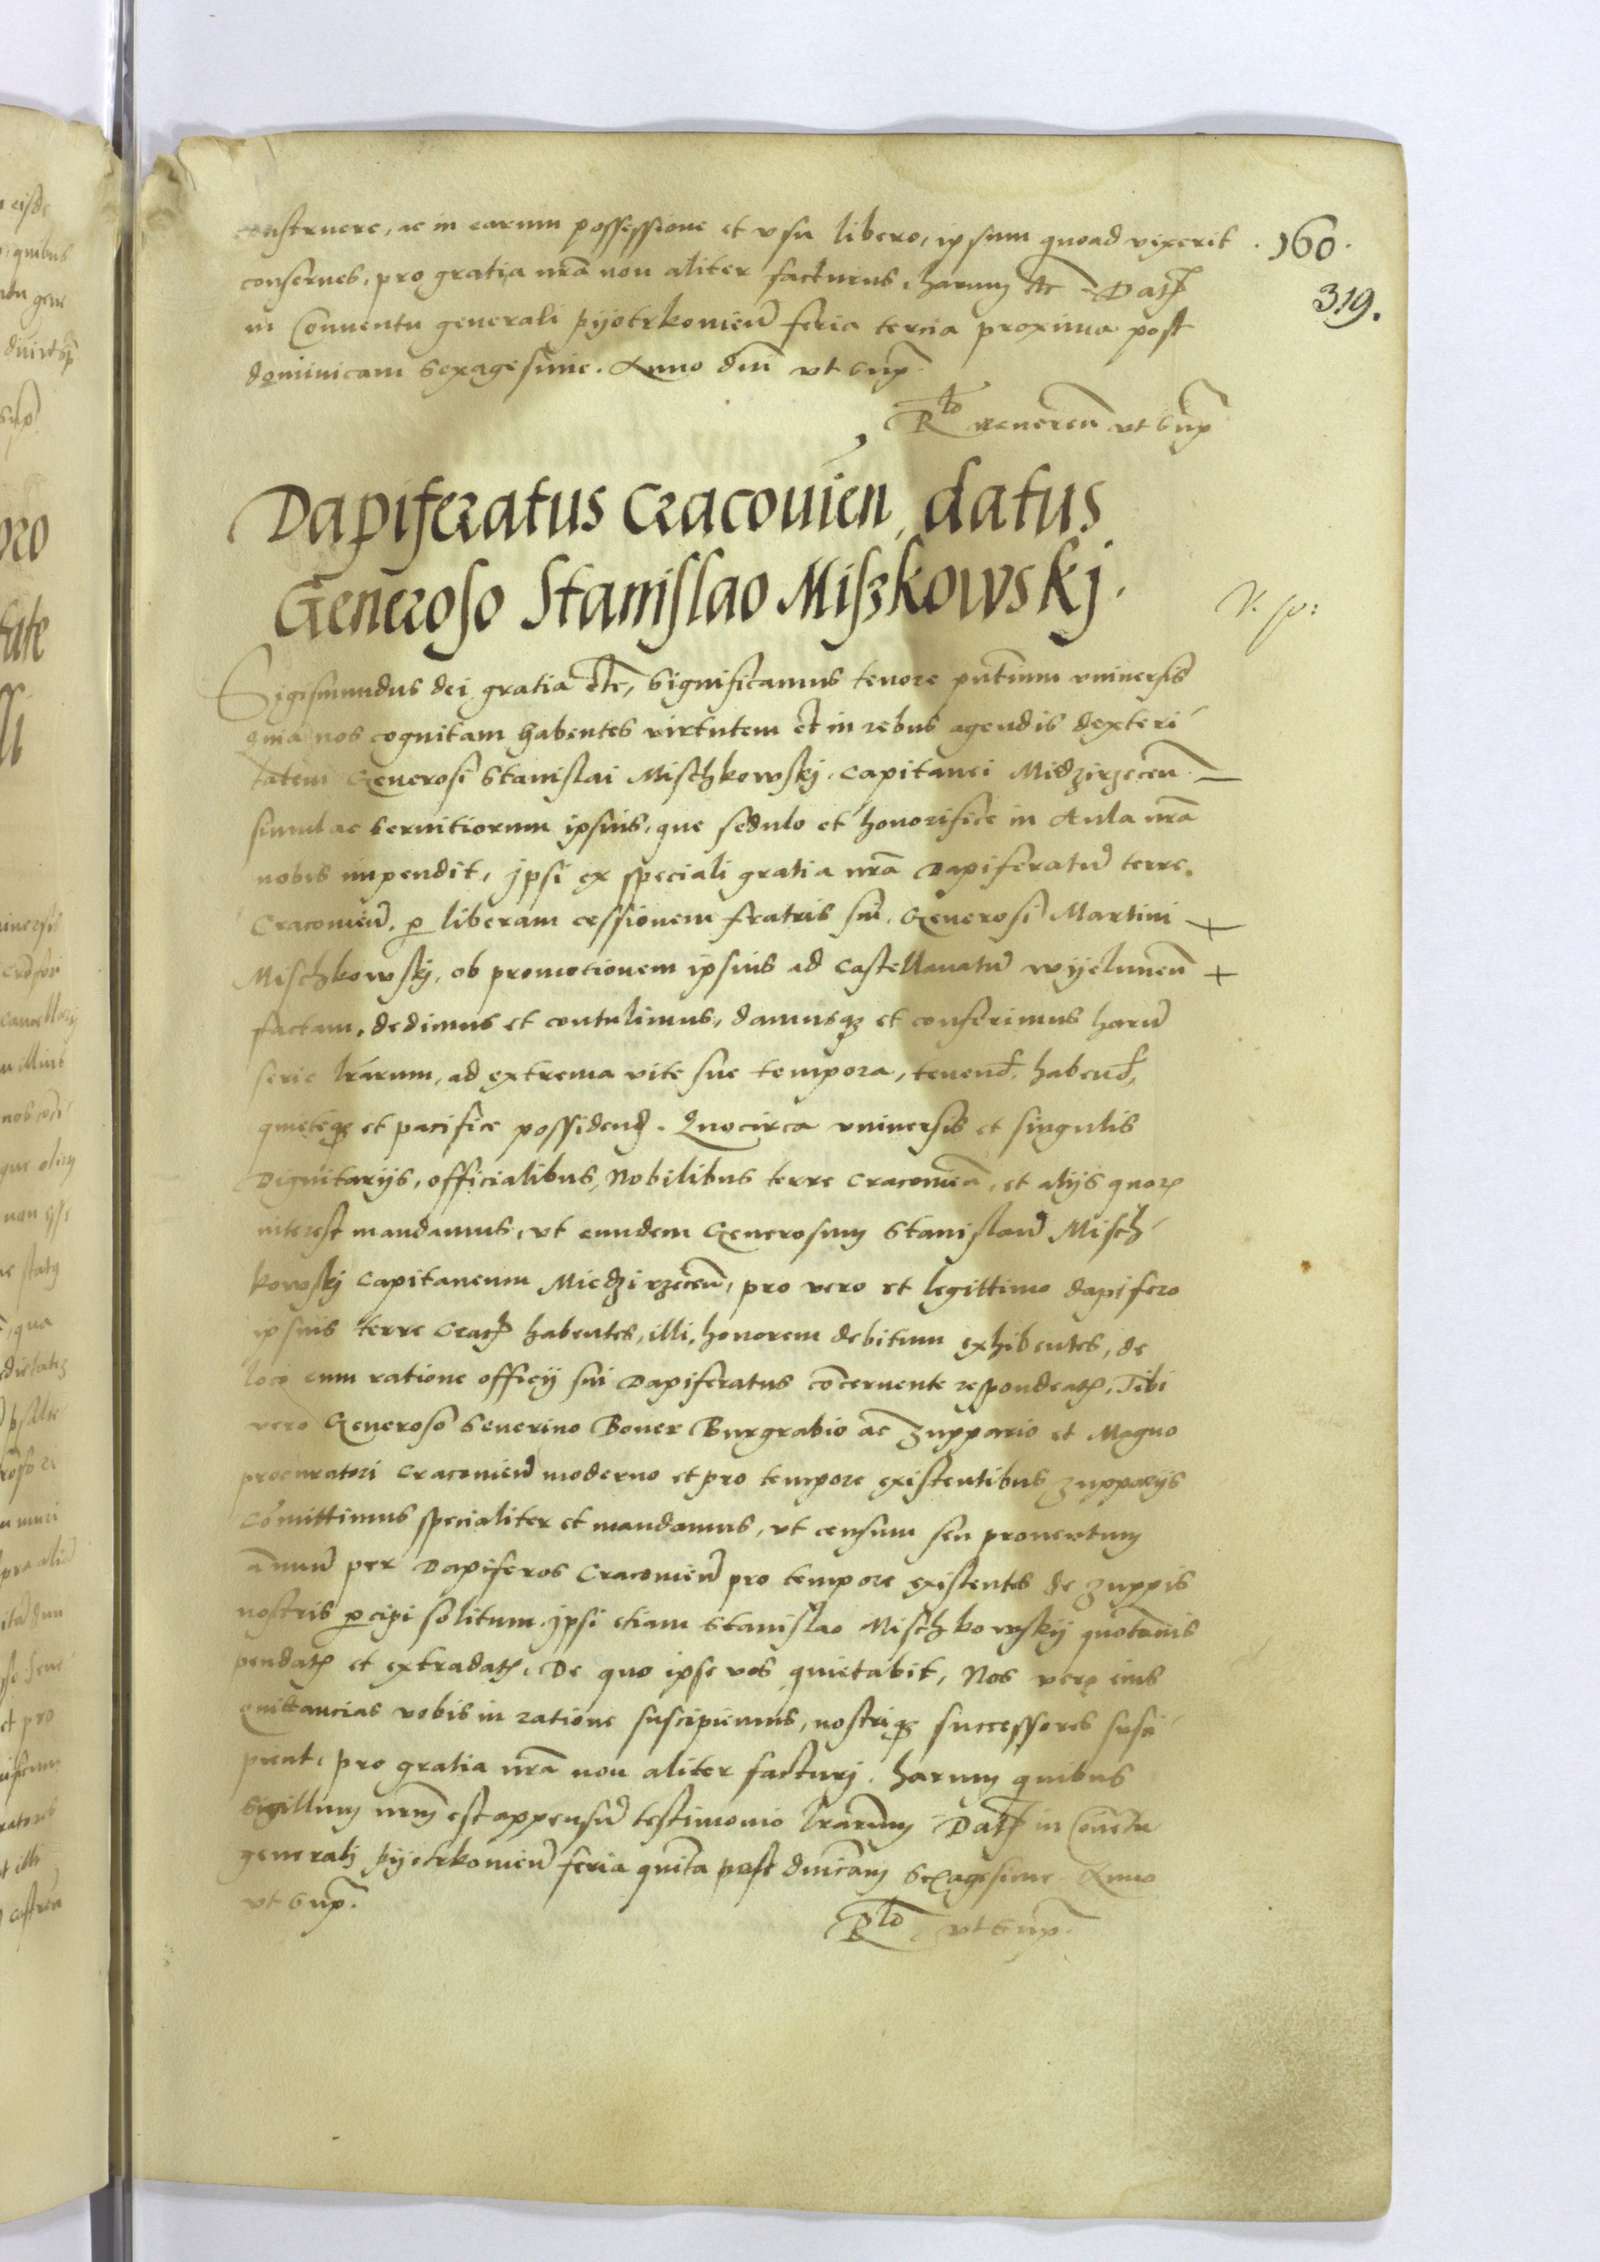 construere, ac in earum possessione et vsu libero, ipsum quoad vixerit
·160·
conserues, pro gratia nrã non aliter facturus, harum etc Datt
319.
in Conuentu generali pijotrkouien feria tercia proxima post
dominicam Sexagesime. Anno dni vt sup
Rlo veneren vt sup
Dapiferatus Cracouien, datus
Generoso Stanislao Miszkowskj.
V. p:
Sigismundus dei gratia etc, Significamus tenore pntium vniuersis
quia nos cognitam habentes virtutem et in rebus agendis dexteri
tatem Generosi Stanislai Mischkowskj, Capitanei Miedzirzecen
simul ac seruitiorum ipsius, que sedulo et honorifice in Aula nrã
nobis impendit, ipsi ex speciali gratia nrã Dapiferatũ terre
Cracouien, p liberam cessionem fratris sui, Generosi Martini +
Mischkowskj, ob promotionem ipsius ad Castellanatũ wijelunen +
factam, dedimus et contulimus, damusq et conferimus harũ
serie lrarum, ad extrema vite sue tempora, tenend, habend,
quieteq et pacifice possidend. Quocirca vniuersis et singulis
Dignitarijs, officialibus, Nobilibus terre Cracouien, et alijs quor
interest mandamus, vt eundem Generosum Stanislaũ Misch
kowskj Capitaneum Miedzirzecen, pro vero et legittimo dapifero
ipsius terre Crac habentes, illi, honorem debitum exhibentes, de
loco eum ratione officij sui Dapiferatus cõcernente respondeat, Tibi
vero Generoso Seuerino Boner Burgrabio ac zuppario et Magno
procuratori Cracouien moderno et pro tempore existentibus zupparijs
Cõmittimus specialiter et mandamus, vt censum seu prouentum
annuũ per Dapiferos Cracouien pro tempore existentes de zuppis
nostris p cipi solitum, ipsi etiam Stanislao Mischkowskij quotannis
pendat et extradat, De quo ipse vos quietabit, Nos vero eius
quittancias vobis in ratione suscipiemus, nostriq successores susci
pient, pro gratia nrã non aliter facturj, harum quibus
Sigillum nrm est appensũ testimonio lrarum Datt in Conentu
generalj pijotrkouien feria quinta post dnicam Sexagesime Anno
vt sup.
Rlo vt sup